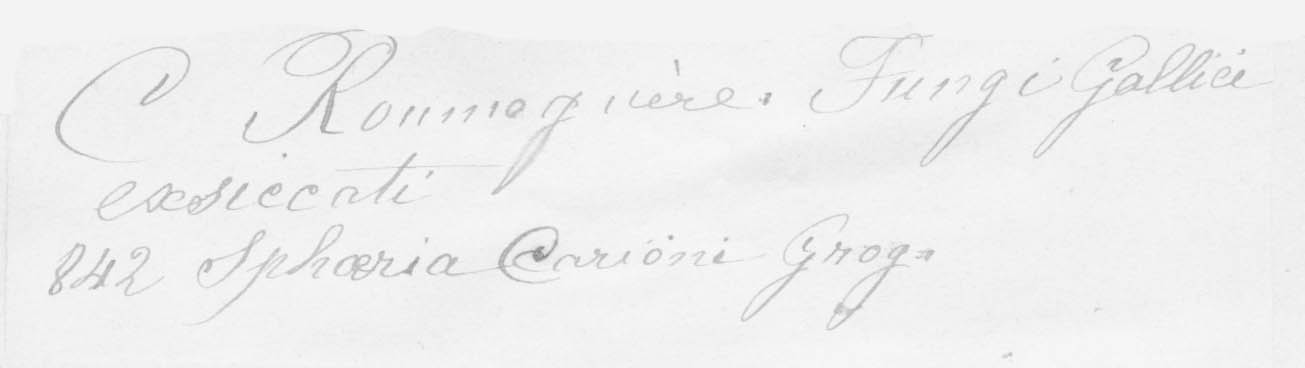 C Roumeguère. Fungi Gallici
exsiccati
842 Sphæria Carioni Grog.